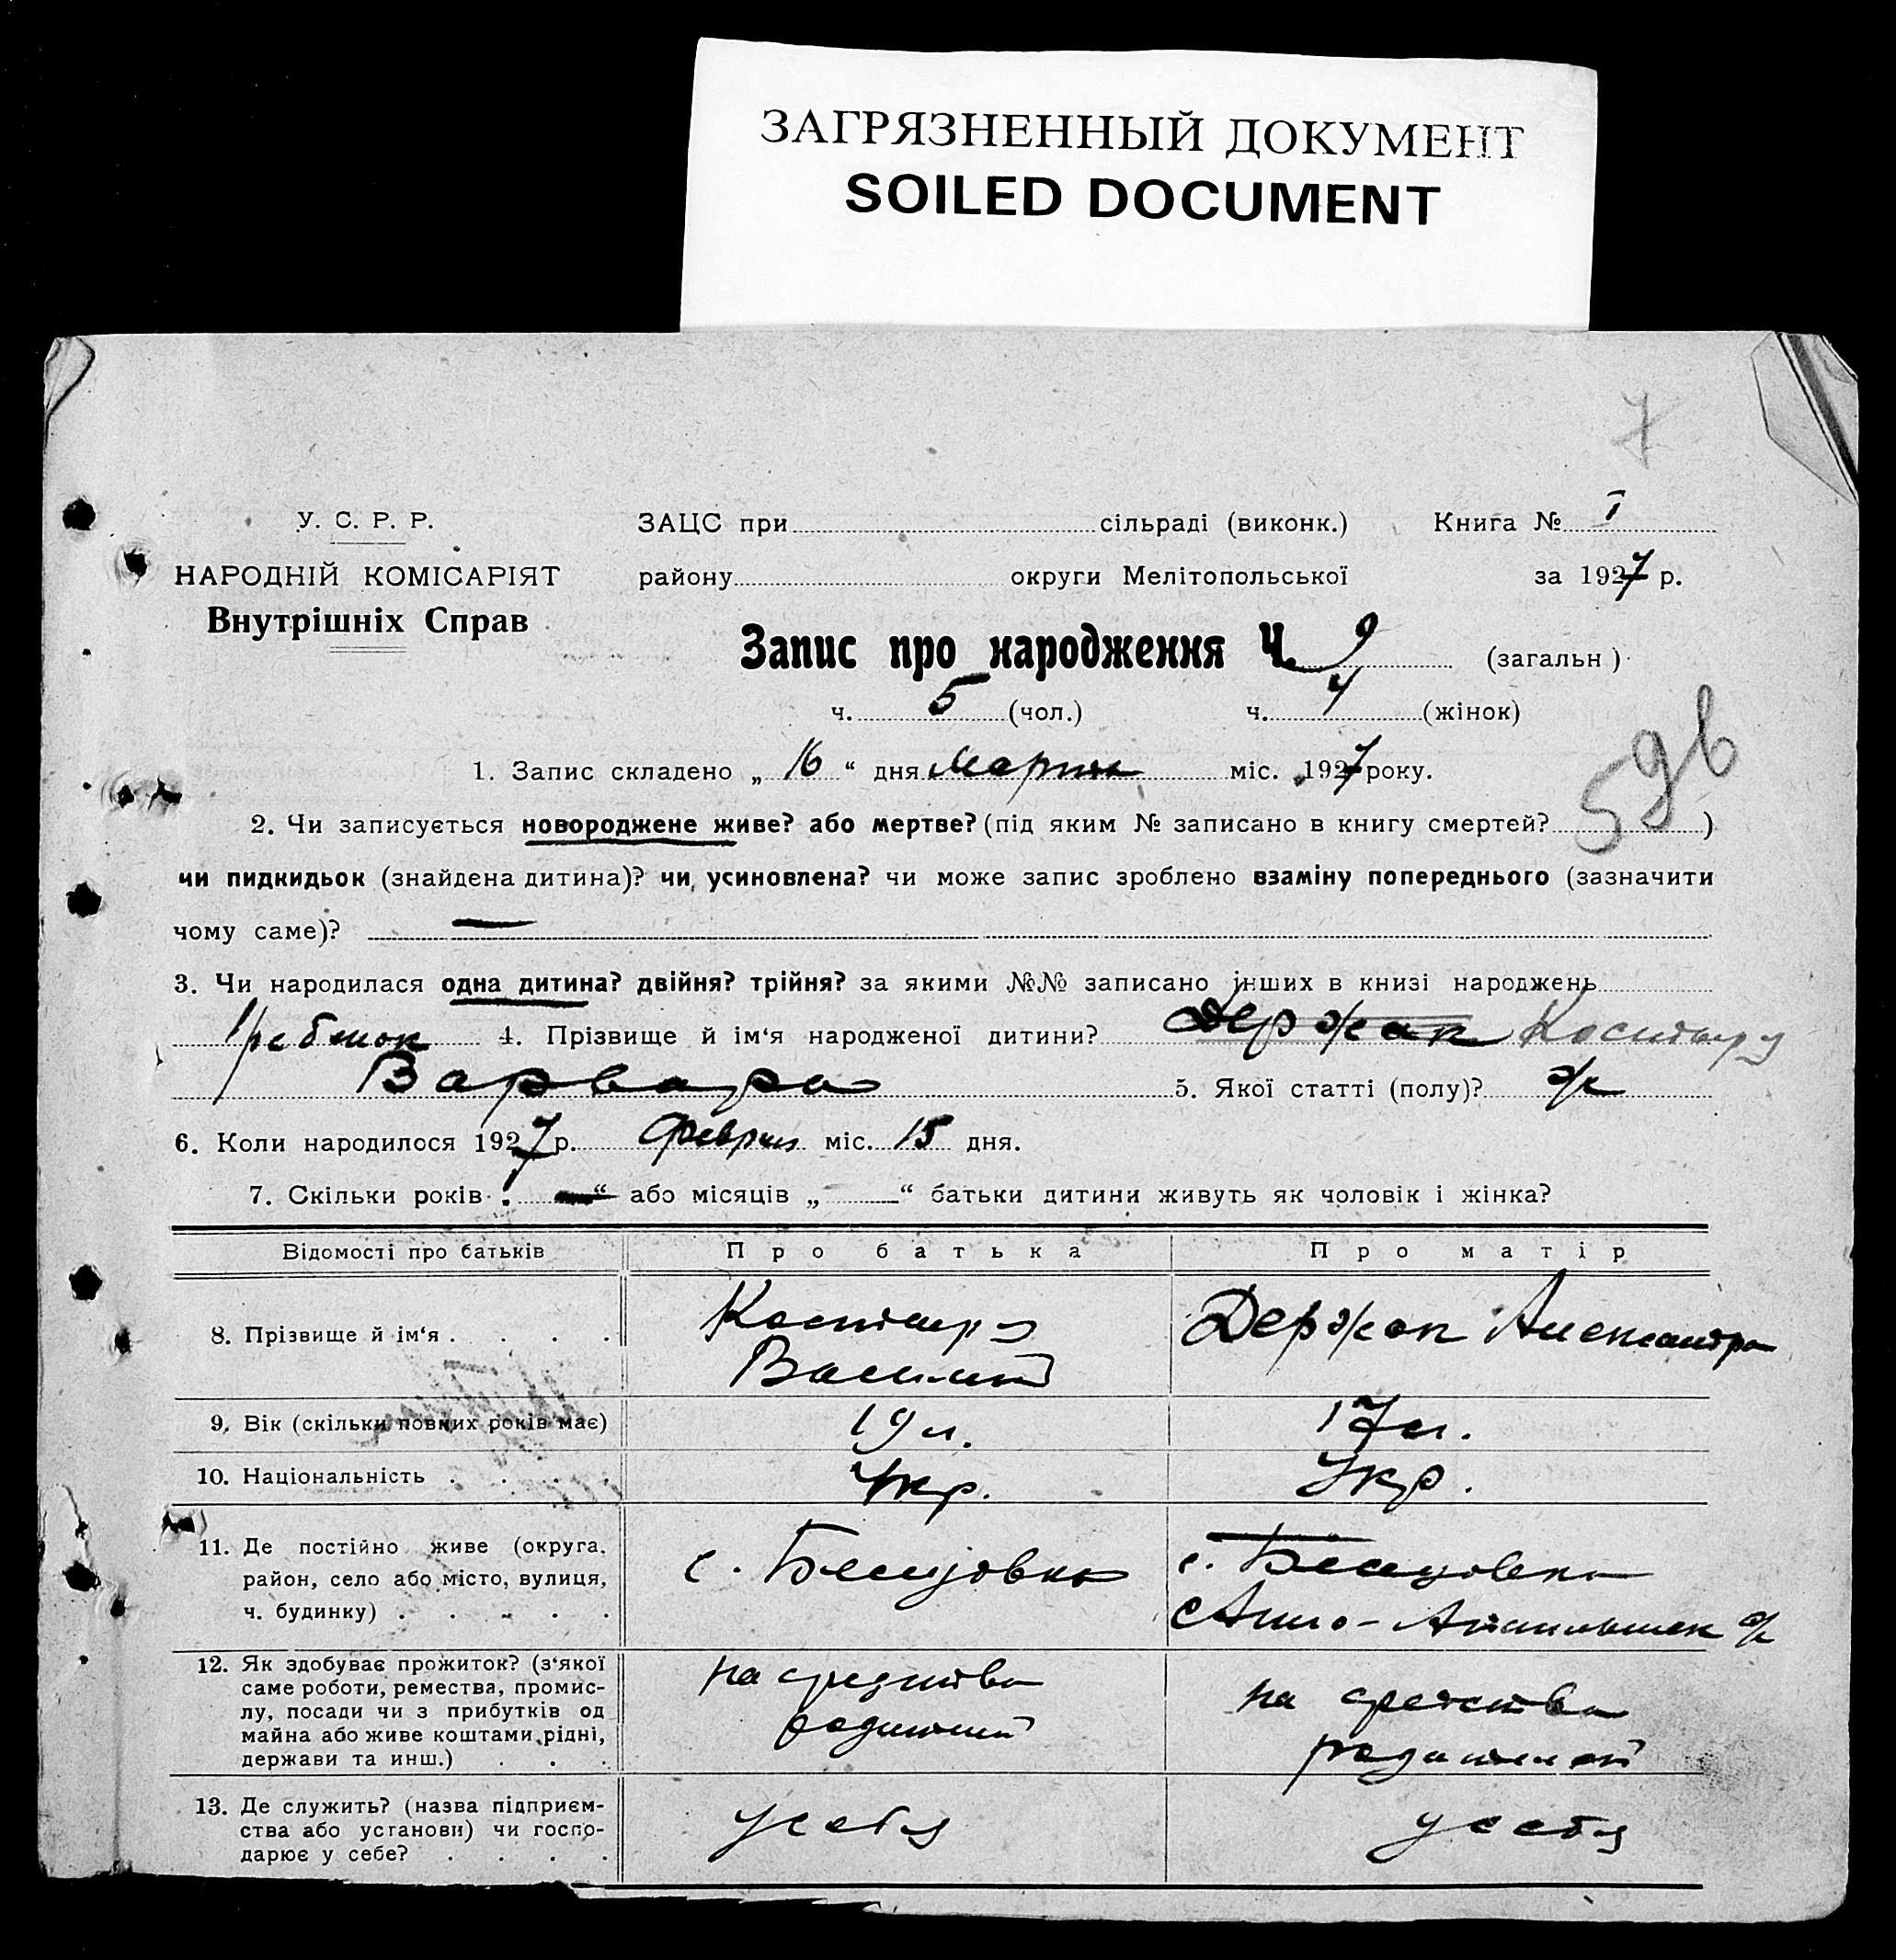 ЗАГРЯЗНЕННЫЙ ДОКУМЕНТ
SOILED DOCUMENT
7
У. С. Р. Р.
НАРОДНІЙ КОМІСАРІЯТ
Внутрішніх Справ
ЗАЦС при сільраді (виконк.) Книга № I
району округи Мелітопольської за 1927 р.
Запис про народження Ч. 9 (загальн)
ч. 5 (чол.) ч. 4 (жінок)
1. Запис складено „ 16 “ дня Марта міс. 1927 року.
2. Чи записується новороджене живе? або мертве? (під яким № записано в книгу смертей? )
чи пидкидьок (знайдена дитина)? чи усиновлена? чи може запис зроблено взаміну попереднього (зазначити
чому саме)? —
3. Чи народилася одна дитина? двійня? трійня? за якими №№ записано інших в книзі народжень
4. Прізвище й ім‘я народженої дитини? Держак Костыру
Варвара 5. Якої статті (полу)? ж
6. Коли народилося 1927 р. Феврал міс. 15 дня.
7. Скільки років “ або місяців „ — “ батьки дитини живуть як чоловік і жінка?
Відомості про батьків Про батька Про матір
8. Прізвище й ім‘я . . . . Василий Держак Александра
9. Вік (скільки повних років має) 19 л. 17 л.
10. Національність . . . . Укр. Укр.
11. Де постійно живе (округа,
район, село або місто, вулиця,
ч. будинку) . . . . .
12. Як здобуває прожиток? (з‘якої
саме роботи, ремества, промис-
лу, посади чи з прибутків од
майна або живе коштами рідні,
держави та инш.) . . .
на средства
родителей
на средства
родителей
13. Де служить? (назва підприєм-
ства або установи) чи госпо-
дарює у себе? . . . .
у себя
у себя